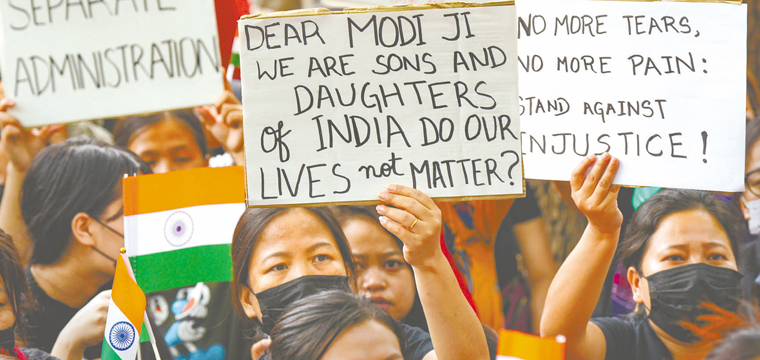 SEPARATE
ADMINISTRATION
DEAR MODI JI
WE ARE SONS AND
DAUGHTERS
of INDIA DO OUR
LIVES not MATTER?
NO MORE TEARS,
NO MORE PAIN:
STAND AGAINST
INJUSTICE!